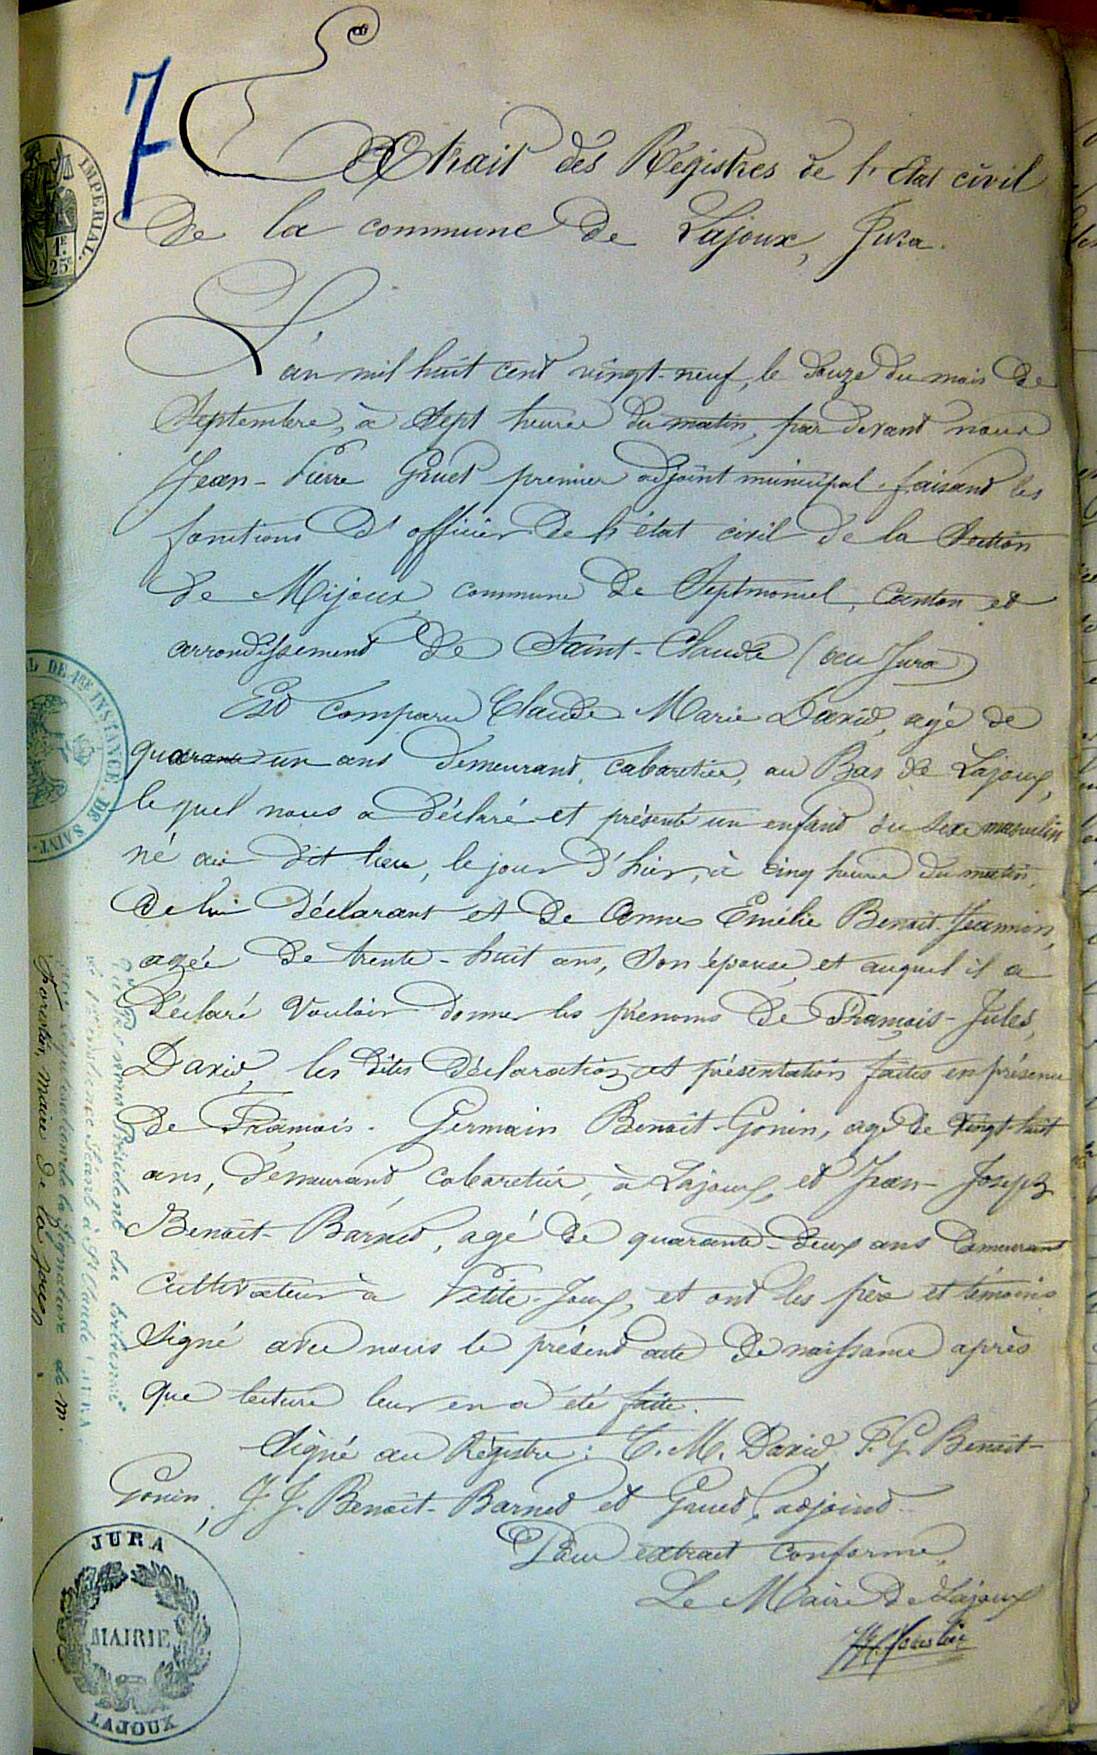 7
Extrait des Régistres de l'Etat civil
de la commune de Lajoux, Jura.
IMPERIAL.
1F.
25c
L'an mil huit cent vingt-neuf, le douze du mois de
Septembre, à Sept heures du matin, par devant nous
Jean-Pierre Gruet premier adjoint municipal faisant les
fonctions d'officier de l'état civil de la Section
de Mijoux, commune de Septmoncel, canton et
arrondissement de Saint-Claude (au Jura)
Est comparu Claude Marie David, agé de
quarante un ans demeurant, cabaretier, au Bas de Lajoux,
lequel nous a déclaré et présenté un enfant du sexe masculin
né au dit lieu, le jour d'hier, à cinq heures du matin,
de lui déclarant et de Anne Emélie Benoit-Jeannin,
agée de trente-huit ans, Son épouse, et auquel il a
déclaré vouloir donner les prénoms de François-Jules,
David, les dites déclaration et présentation faites en présence
de François-Germain Benoit-Gonin, agé de vingt-huit
ans, demeurant cabaretier, à Lajoux, et Jean-Joseph
Benoit-Barnet, agé de quarante-deux ans demeurant
cultivateur à Petite-Joux, et ont les père et témoins
Signé avec nous le présent acte de naissance après
que lecture leur en a été faite.
Signé au Régistre: C. M. David, F. G. Benoit-
Gonin, J. J. Benoit-Barnet et Gruet, adjoint.
Pour extrait conforme,
Le Maire de Lajoux
L DE 1ère INSTANCE. DE SAINT-
président du tribunal
de 1ère instance séant à St Claude (JURA)
la signature de M.
maire de la Joux
JURA
MAIRIE
LAJOUX